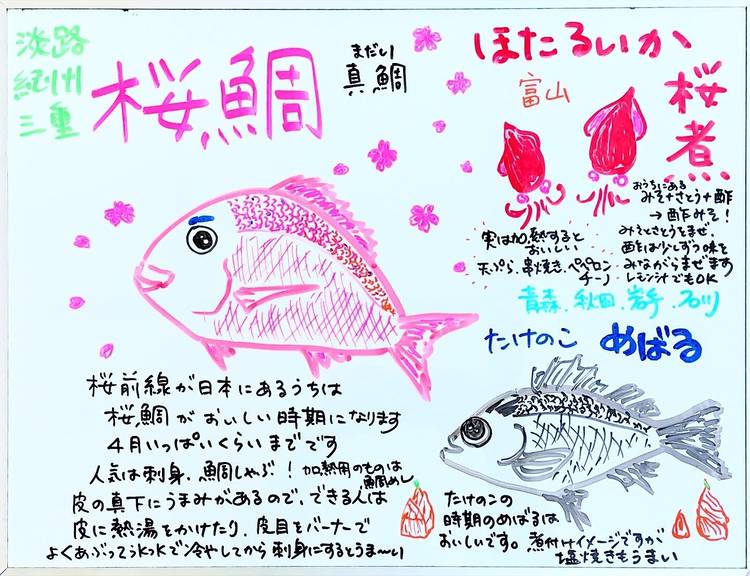 淡路
紀州
三重
桜鯛
まだい
真鯛
桜前線が日本にあるうちは
桜鯛がおいしい時期になります
4月いっぱいくらいまでです
人気は刺身、鯛しゃぶ！加熱用のものは
鯛めし
皮の真下にうまみがあるので、できる人は
皮に熱湯をかけたり、皮目をバーナーで
よくあぶってうkっkで冷やしてから刺身にするとうま～い
ほたるいか
富山
桜煮
実は加熱すると
おいしい
天ぷら、串焼き、ペペロン
チーノ
おうちにある
みそ+さとう+酢
→酢みそ！
みそとさとうをまぜ、
酢は少しずつ味を
みながらまぜます
レモン汁でもOK
青森、秋田、岩手、石川
たけのこ めばる
たけのこの
時期のめばるは
おいしいです。煮付けイメージですが
塩焼きもうまい